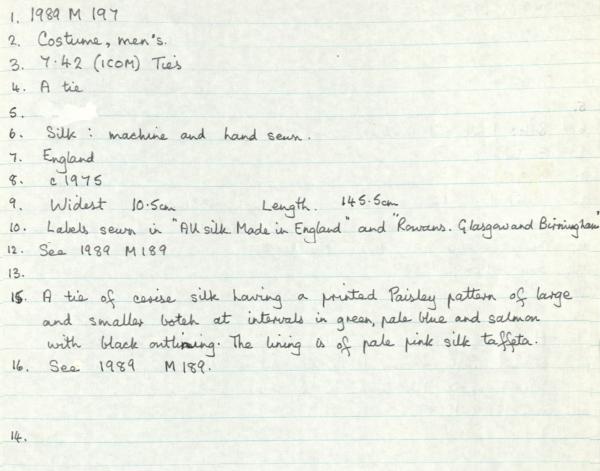 1. 1989 M 197
2. Costume, men's.
3. 7.42 (ICOM) Ties
4. A tie
5.
6. Silk : machine and hand sewn.
7. England
8. c 1975
9. Widest 10.5cm Length. 145.5cm
10. Labels sewn in "All silk Made in England" and "Rowans. Glasgow and Birmingham"
12. See 1989 M189
13.
15. A tie of cerise silk having a printed Paisley pattern of large
and smaller boteh at intervals in green, pale blue and salmon
with black outlining. The lining is of pale pink silk taffeta.
16. See 1989 M189.
14.